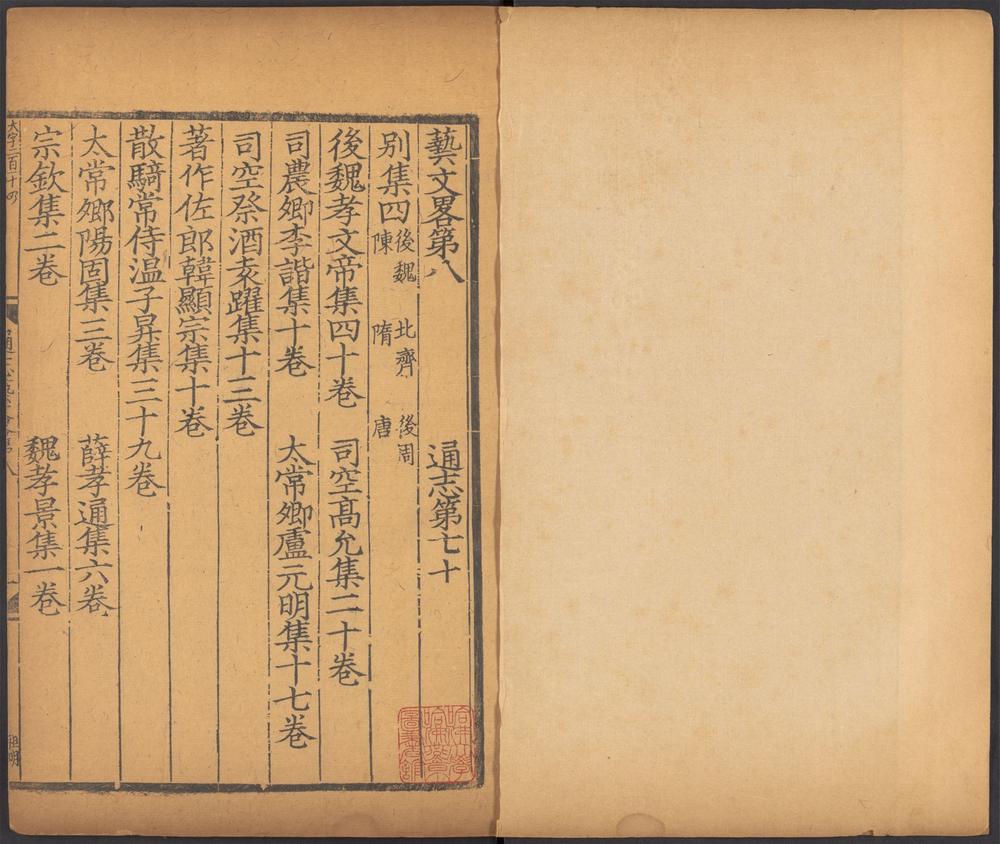 藝文畧第八 通志第七十
別集四 後魏 北齊 後周 陳 隋 唐
後魏孝文帝集四十卷 司空高允集二十卷
司農卿李諧集十卷 太常卿盧元明集十七卷
司空祭酒袁躍集十三卷
著作佐郎韓顯宗集十卷
散騎常侍温子昇集三十九卷
太常卿陽固集三卷 薛孝通集六卷
宗欽集二卷 魏孝景集一卷
大字二百十四